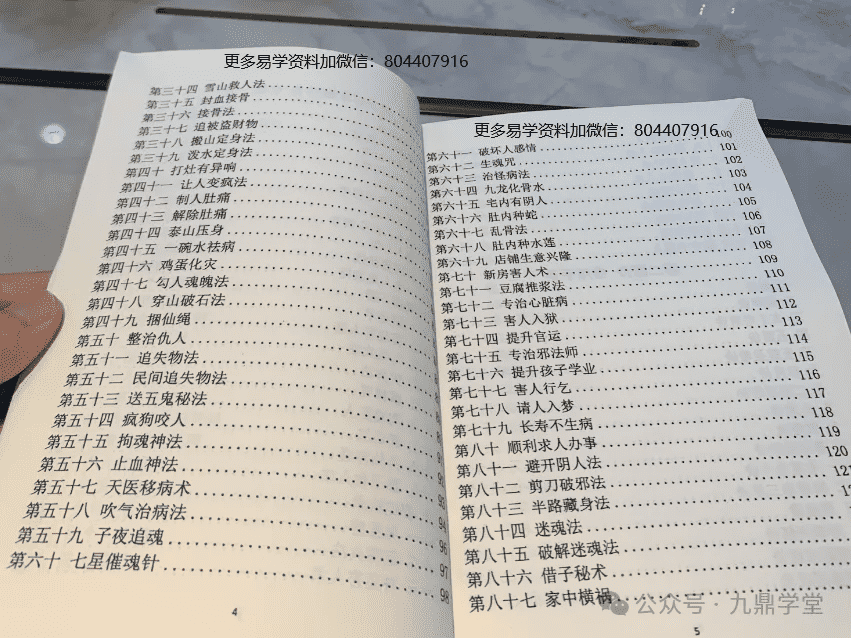 更多易学资料加微信：804407916
第三十四 雪山救人法
第三十五 封血接骨
第三十六 接骨法
第三十七 追被盗财物
第三十八 搬山定身法
第三十九 泼水定身法
第四十 打灶有异响
第四十一 让人变疯法
第四十二 制人肚痛
第四十三 解除肚痛
第四十四 泰山压身
第四十五 一碗水祛病
第四十六 鸡蛋化灾
第四十七 勾人魂魄法
第四十八 穿山破石法
第四十九 捆仙绳
第五十 整治仇人
第五十一 追失物法
第五十二 民间追失物法
第五十三 送五鬼秘法
第五十四 疯狗咬人
第五十五 拘魂神法
第五十六 止血神法
第五十七 天医移病术
第五十八 吹气治病法 94
第五十九 子夜追魂 96
第六十 七星催魂针 97
98
4
更多易学资料加微信：804407916
第六十一 破坏人感情 100
第六十二 生魂咒 101
第六十三 治怪病法 102
第六十四 九龙化骨水 103
第六十五 宅内有阴人 104
第六十六 肚内种蛇 105
第六十七 乱骨法 106
第六十八 肚内种水莲 107
第六十九 店铺生意兴隆 108
第七十 新房害人术 109
第七十一 豆腐推浆法 110
第七十二 专治心脏病 111
第七十三 害人入狱 112
第七十四 提升官运 113
第七十五 专治邪法师 114
第七十六 提升孩子学业 115
第七十七 害人行乞 116
第七十八 请人入梦 117
第七十九 长寿不生病 118
第八十 顺利求人办事 119
第八十一 避开阴人法 120
第八十二 剪刀破邪法 121
第八十三 半路藏身法
第八十四 迷魂法
第八十五 破解迷魂法
第八十六 借子秘术
第八十七 家中横祸
5
公众号·九鼎学堂